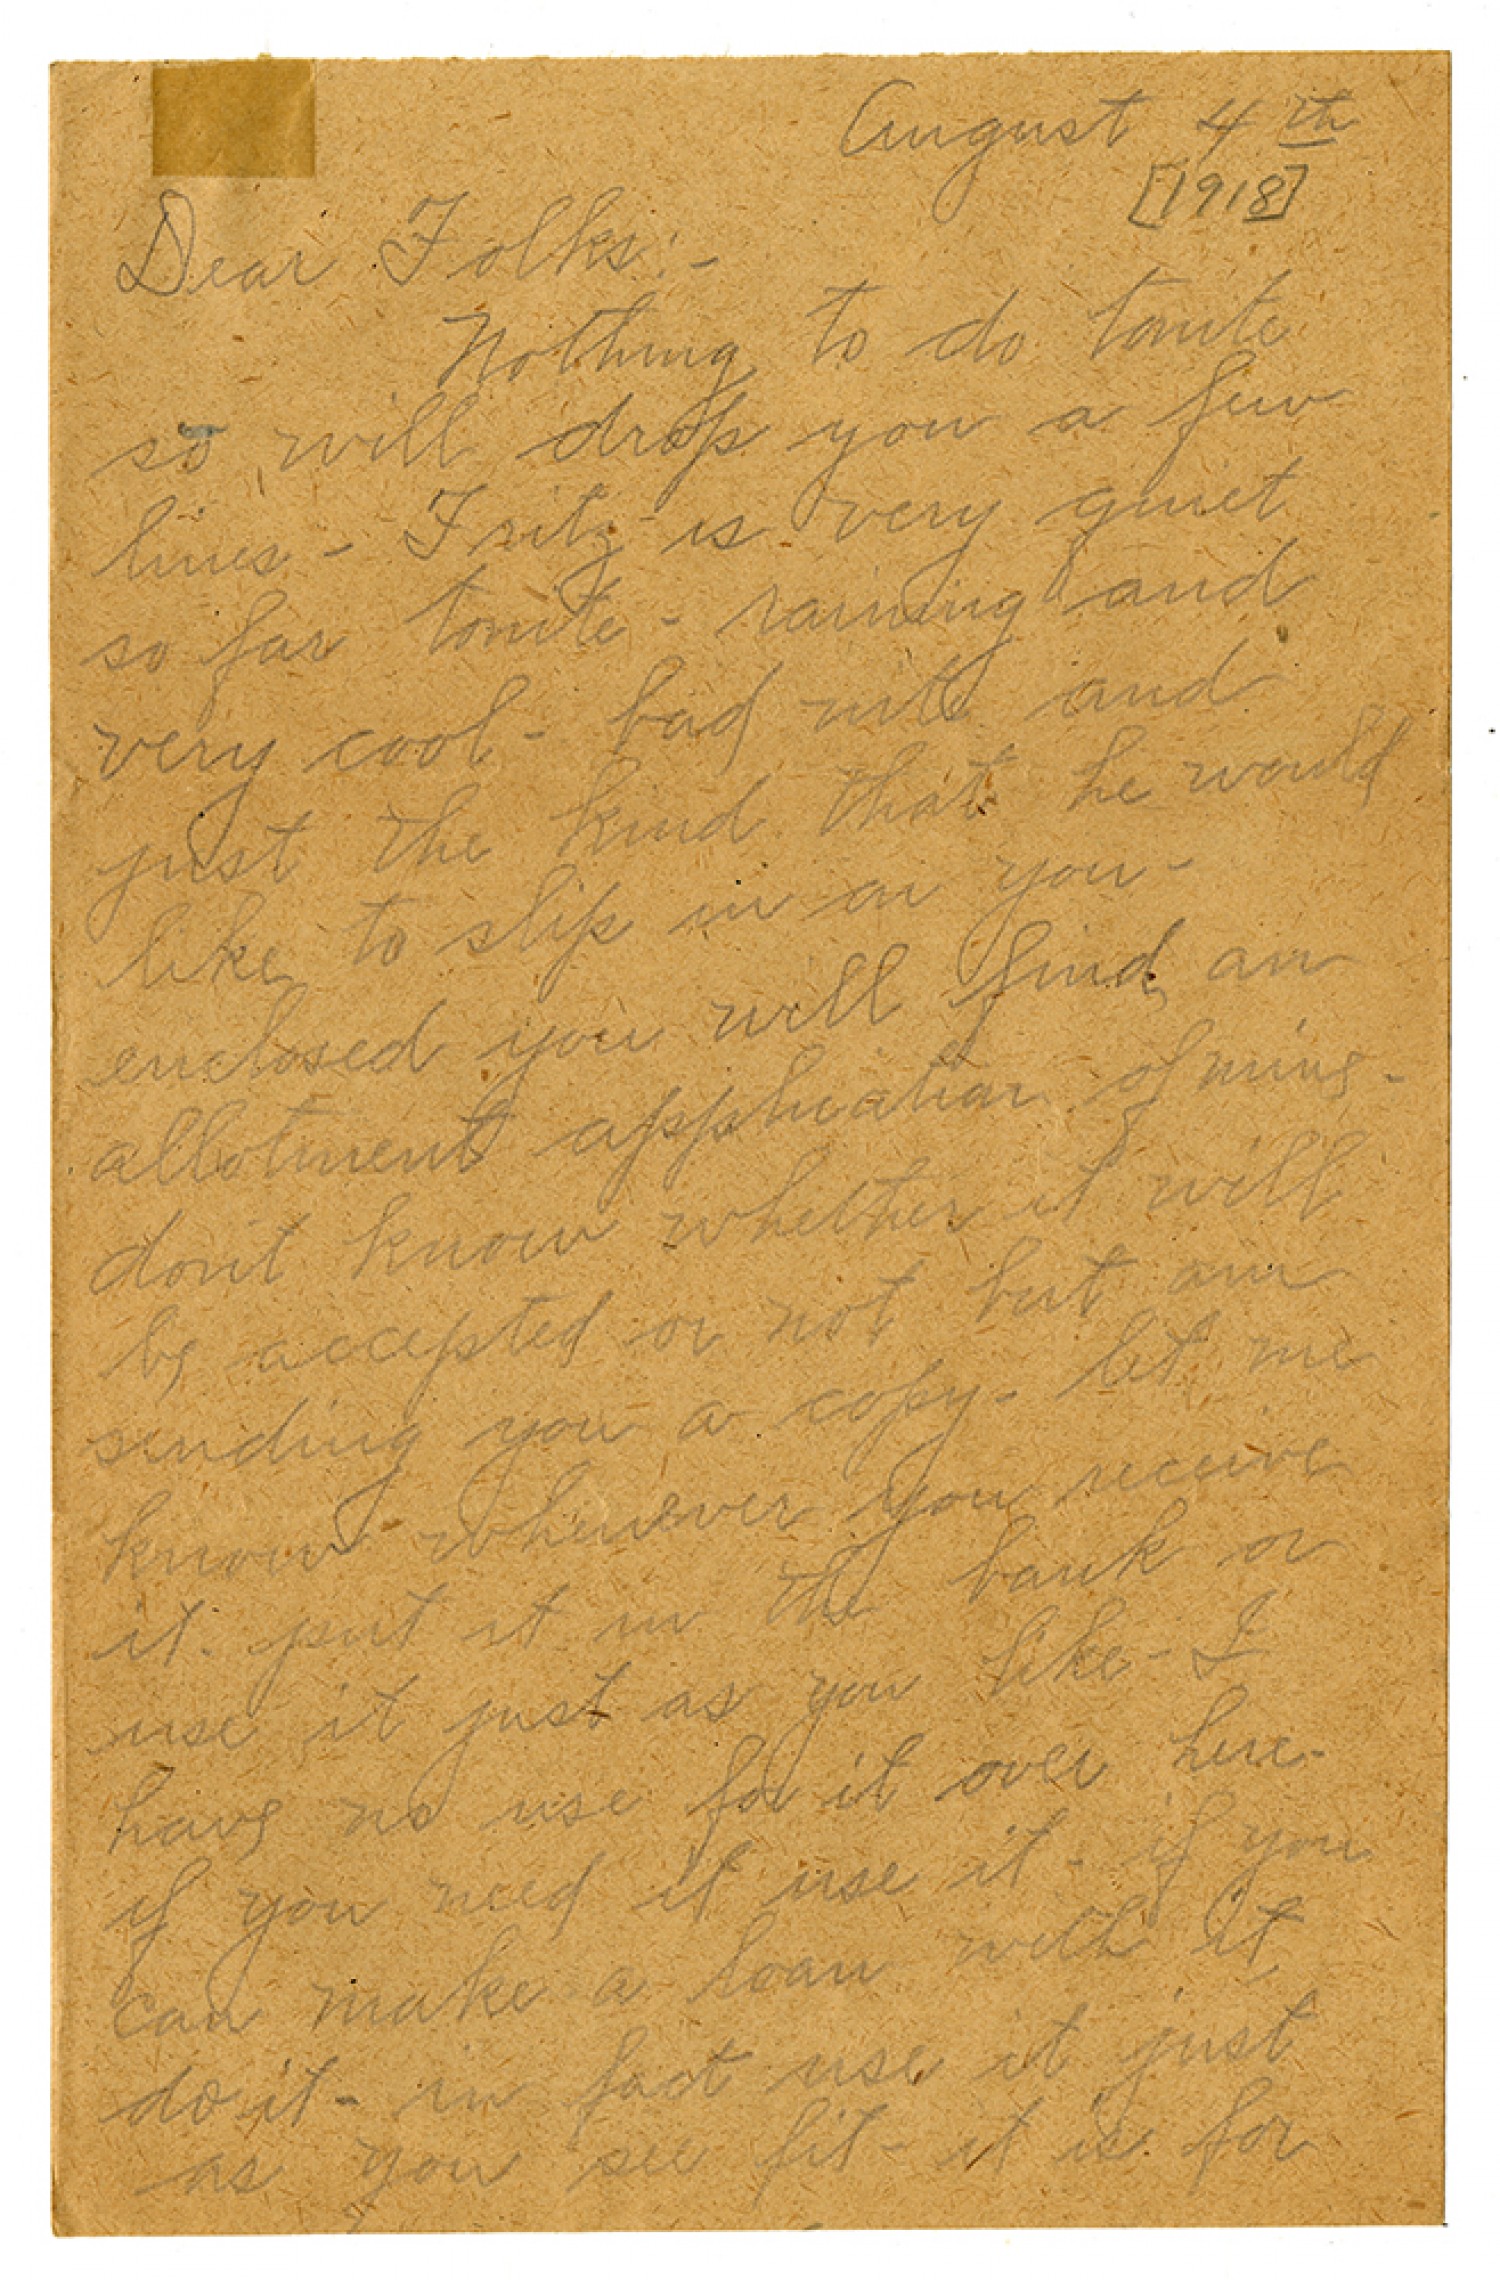 August 4th
[1918]
Dear Folks:-
Nothing to do tonite
so will drop you a few
lines - Fritz is very quiet
so far tonite - raining and
very cool - bad nite and
just the kind that he would
like to slip in on you -
enclosed you will find an
allotment application of mine -
don't know whether it will
be accepted or not but am
sending you a copy - let me
know whenever you receive
it. put it in the bank or
use it just as you like - I
have no use for it over here -
if you need it use it - if you
can make a loan with it
do it - in fact use it just
as you see fit - it is for